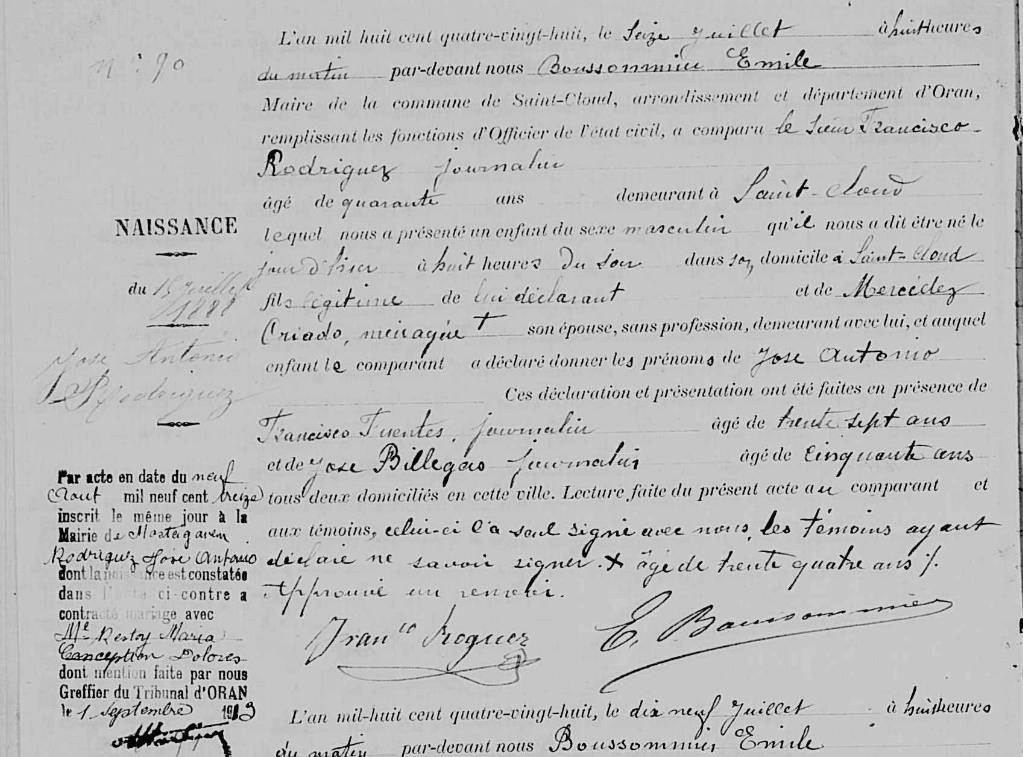 N° 90
NAISSANCE
du 15 Juillet
1888
Jose Antonio
Rodriguez
Par acte en date du neuf
Aout mil neuf cent treize
inscrit le même jour à la
Mairie de Mostaganem
Rodriguez José Antonio
dont la naissance est constatée
dans l'acte ci-contre a
contracté mariage avec
Mlle Restoy Maria
Conception Dolores
dont mention faite par nous
Greffier du Tribunal d'ORAN
le 1 Septembre 1913
L'an mil huit cent quatre-vingt-huit, le Seize Juillet à huit heures
du matin par-devant nous Boussommier Emile
Maire de la commune de Saint-Cloud, arrondissement et département d'Oran,
remplissant les fonctions d'Officier de l'état civil, a comparu le sieur Francisco
Rodriguez journalier
âgé de quarante ans demeurant à Saint-Cloud
lequel nous a présenté un enfant du sexe masculin qu'il nous a dit être né le
jour d'hier à huit heures du soir dans son domicile à Saint-Cloud
fils légitime de lui déclarant et de Mercédez
Criado, ménagère + son épouse, sans profession, demeurant avec lui, et auquel
enfant le comparant a déclaré donner les prénoms de Jose Antonio
Ces déclaration et présentation ont été faites en présence de
Francisco Fuentes, journalier âgé de trente sept ans
et de Jose Billegas journalier âgé de Cinquante ans
tous deux domiciliés en cette ville. Lecture faite du présent acte au comparant et
aux témoins, celui-ci l'a seul signé avec nous, les témoins ayant
déclaré ne savoir signer. + âgé de trente quatre ans /.
Approuvé un renvoi.
Fran.co Roguez E. Boussommier
L'an mil-huit cent quatre-vingt-huit, le dix neuf Juillet à huit heures
du matin par-devant nous Boussommier Emile